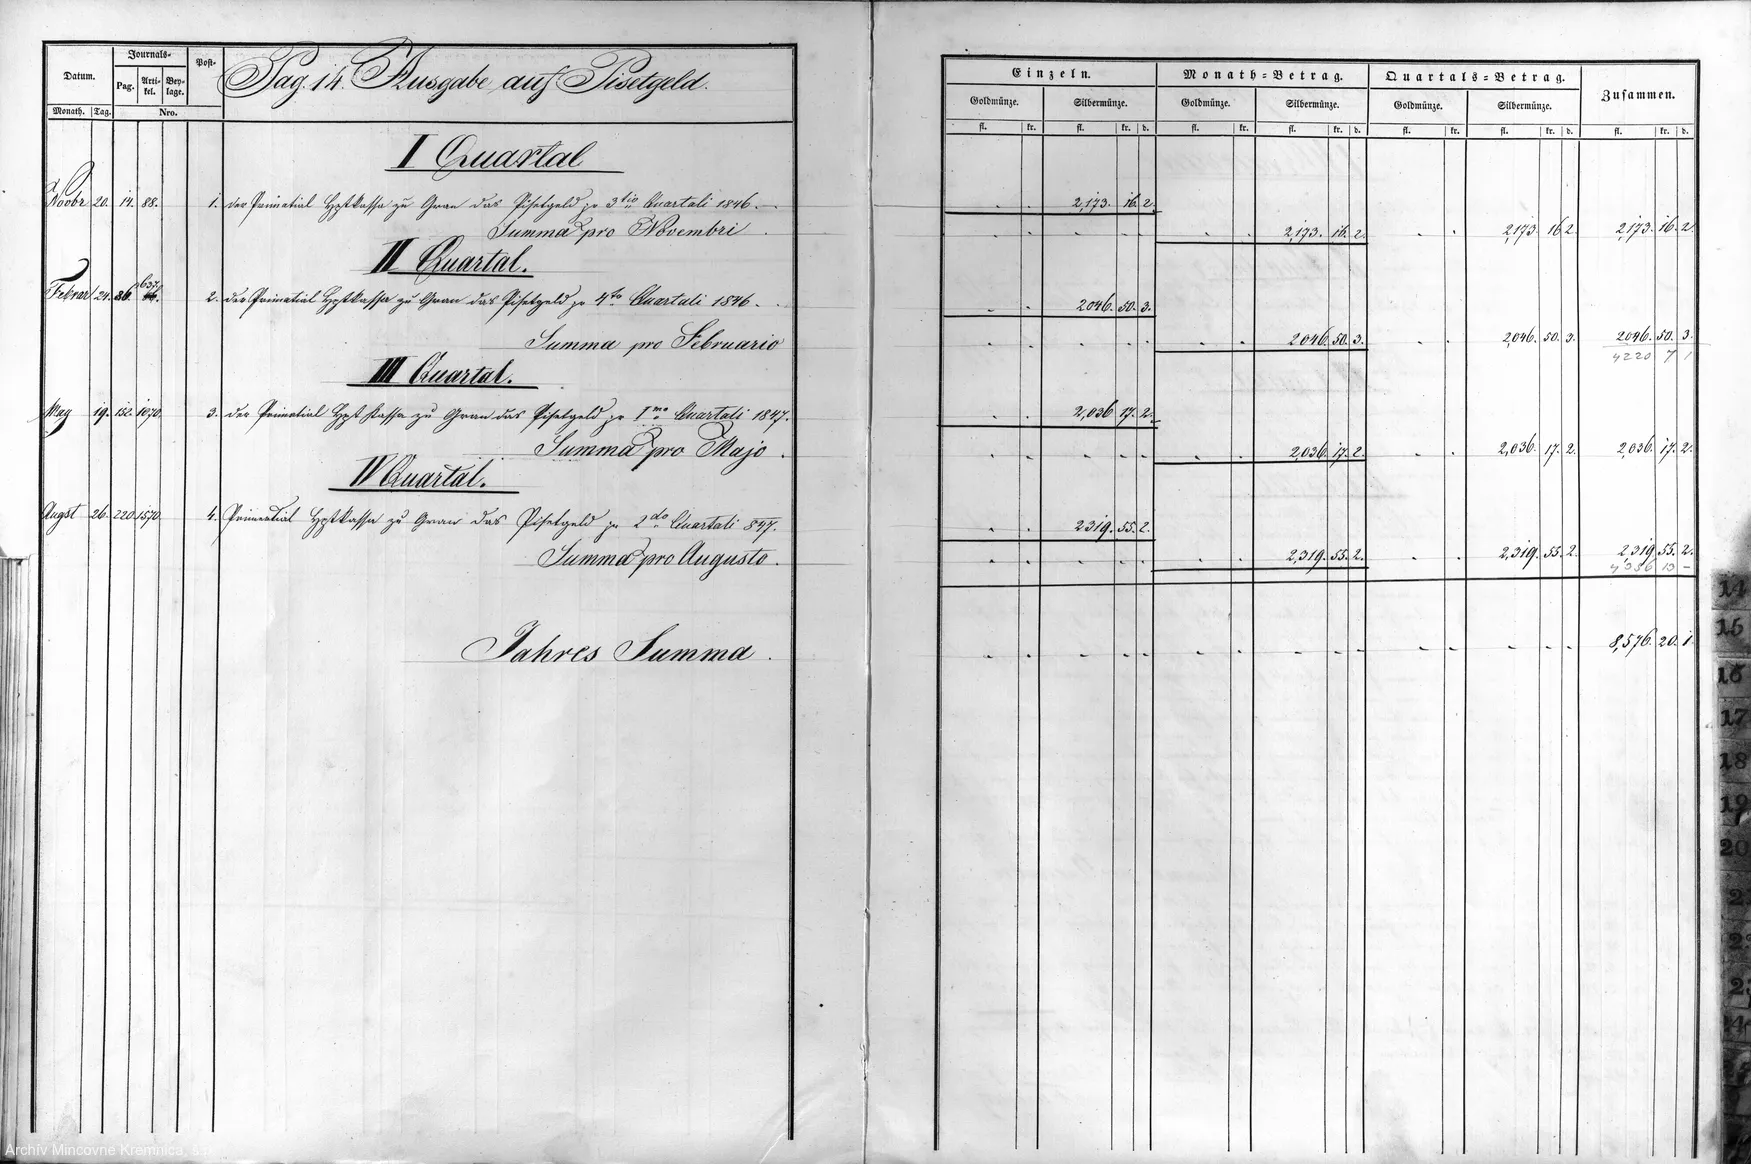 Datum.
Journals-
Post-
Pag.
Arti-
kel.
Bey-
lage.
Monath.
Tag.
Nro.
Pag. 14. Ausgabe auf Pisetgeld.
I Quartal
Novbr 20. 14. 88. 1. der Primatial Hptkassa zu Gran das Pisetgeld pr 3tio Quartali 1846.
Summa pro Novembri
II Quartal.
Februar 24. 86. 637. 2. der Primatial Hptkassa zu Gran das Pisetgeld pr 4to Quartali 1846.
Summa pro Februario
III Quartal.
May 19. 152. 1070. 3. der Primatial Hptkassa zu Gran das Pisetgeld pr 1mo Quartali 1847.
Summa pro Majo
IV Quartal.
Augst 26. 220. 1570. 4. Primatial Hptkassa zu Gran das Pisetgeld pr 2do Quartali 847.
Summa pro Augusto.
Jahres Summa.
Einzeln.
Monath-Betrag.
Quartals-Betrag.
Zusammen.
Goldmünze. Silbermünze. Goldmünze. Silbermünze. Goldmünze. Silbermünze.
fl. kr. fl. kr. d. fl. kr. fl. kr. d. fl. kr. fl. kr. d. fl. kr. d.
2,173. 16. 2.
2,173. 16. 2. 2,173 16 2. 2,173. 16. 2.
2046. 50. 3.
2046. 50. 3. 2,046. 50. 3. 2046. 50. 3.
4220 7 1
2,036 17. 2.
2,036. 17. 2. 2,036. 17. 2. 2,036. 17. 2.
2319. 55. 2.
2,319. 55. 2. 2,319. 55. 2. 2,319 55. 2.
4356 13 -
8,576. 20. 1.
14
15
16
17
18
19
20
Archív Mincovne Kremnica, š.p.